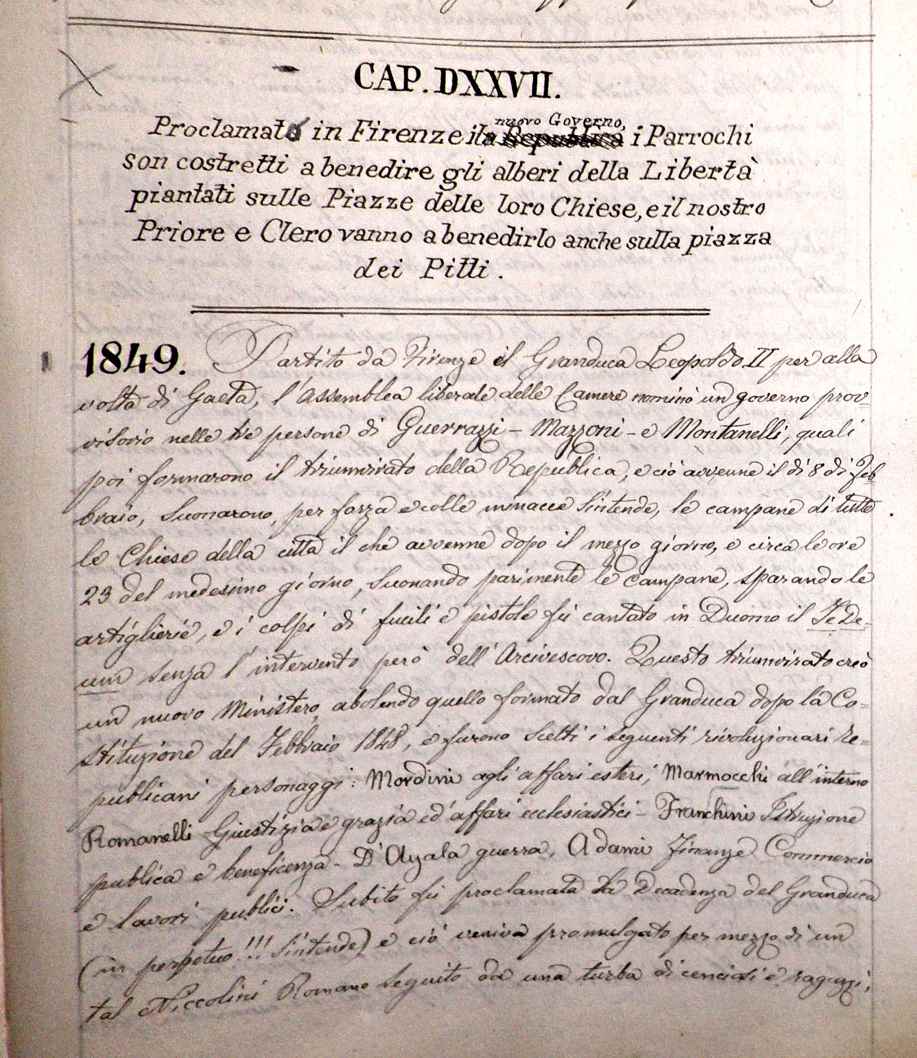 CAP. DXXVII.
Proclamato in Firenze il nuovo Governo, i Parrochi
son costretti a benedire gli alberi della Libertà
piantati sulle Piazze delle loro Chiese, e il nostro
Priore e Clero vanno a benedirlo anche sulla piazza
dei Pitti.
1849. Partito da Firenze il Granduca Leopoldo II per alla
volta di Gaeta, l'Assemblea liberale delle Camere nominò un governo prov-
visorio nelle tre persone di Guerrazzi - Mazzoni - e Montanelli, quali
poi formarono il triumvirato della Repubblica, e ciò avvenne il dì 8 di Feb
braio, Suonarono, per forza e colle minacce s'intende, le campane di tutte
le Chiese della città il che avvenne dopo il mezzo giorno, e circa le ore
23 del medesimo giorno, suonando parimente le campane, sparando le
artiglierie, e i colpi di fucili e pistole fù cantato in Duomo il Te De-
um senza l'intervento però dell'Arcivescovo. Questo triumvirato creò
un nuovo Ministero, abolendo quello formato dal Granduca dopo la Co-
stituzione del Febbraio 1848, e furono scelti i seguenti rivoluzionari Re-
publicani personaggi: Mordini agli affari esteri, Marmocchi all'interno
Romanelli Giustizia e grazia ed affari ecclesiastici - Franchini Istruzione
publica e beneficenza - D'Ayala guerra, Adami Finanze Commercio
e lavori publici. Subito fù proclamata la Decadenza del Granduca
(in perpetuo!!! s'intende) e ciò veniva promulgato per mezzo di un
tal Niccolini Romano seguito da una turba di cenciosi e ragazzi,